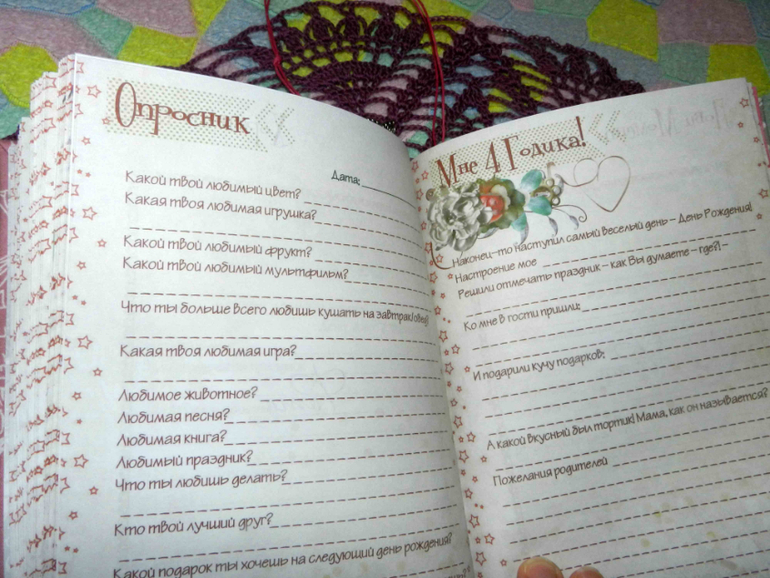 Опросник
Дата:
Какой твой любимый цвет?
Какая твоя любимая игрушка?
Какой твой любимый фрукт?
Какой твой любимый мультфильм?
Что ты больше всего любишь кушать на завтрак/обед?
Какая твоя любимая игра?
Любимое животное?
Любимая песня?
Любимая книга?
Любимый праздник?
Что ты любишь делать?
Кто твой лучший друг?
Какой подарок ты хочешь на следующий день рождения?
Мне 4 Годика!
Наконец-то наступил самый веселый день - День Рождения!
Настроение мое
Решили отмечать праздник - как Вы думаете - где?! -
Ко мне в гости пришли:
И подарили кучу подарков:
А какой вкусный был тортик! Мама, как он называется?
Пожелания родителей